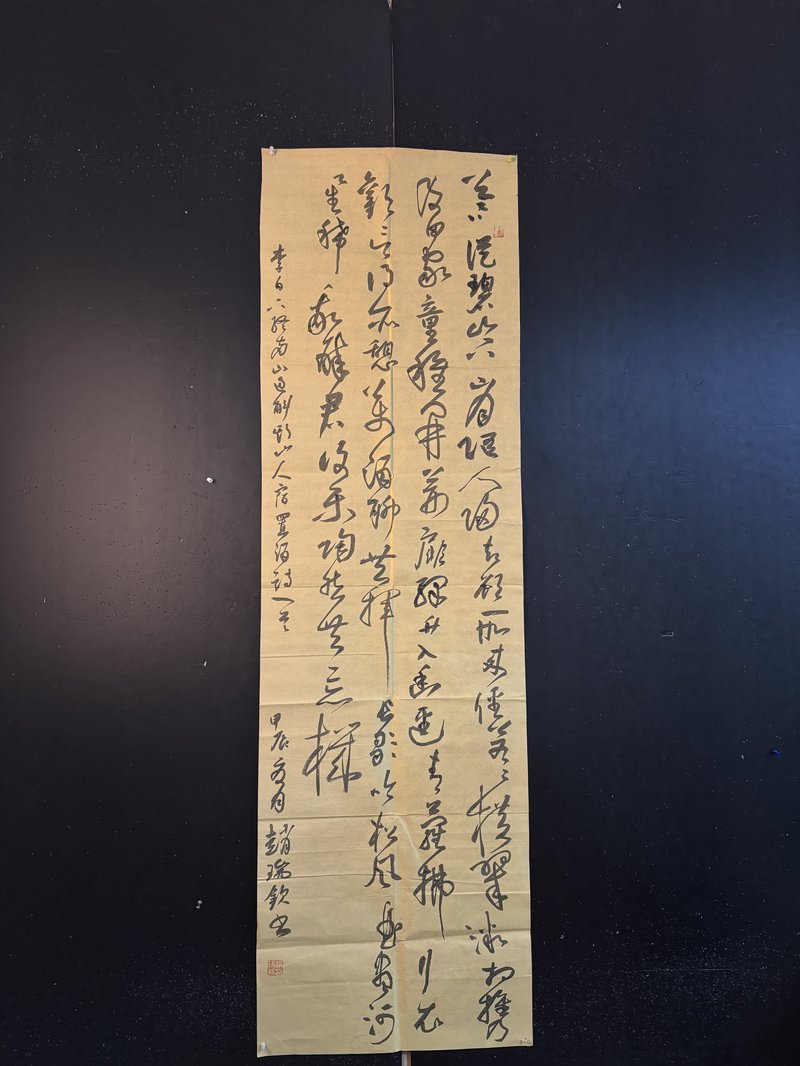 暮從碧山下山月隨人歸却顧所來徑蒼蒼橫翠微相攜
及田家童稚開荆扉綠竹入幽逕青蘿拂行衣
歡言得所憩美酒聊共揮長歌吟松風曲盡河
星稀我醉君復樂陶然共忘機
李白下終南山過斛斯山人宿置酒詩一首
甲辰夏月趙瑞欽書